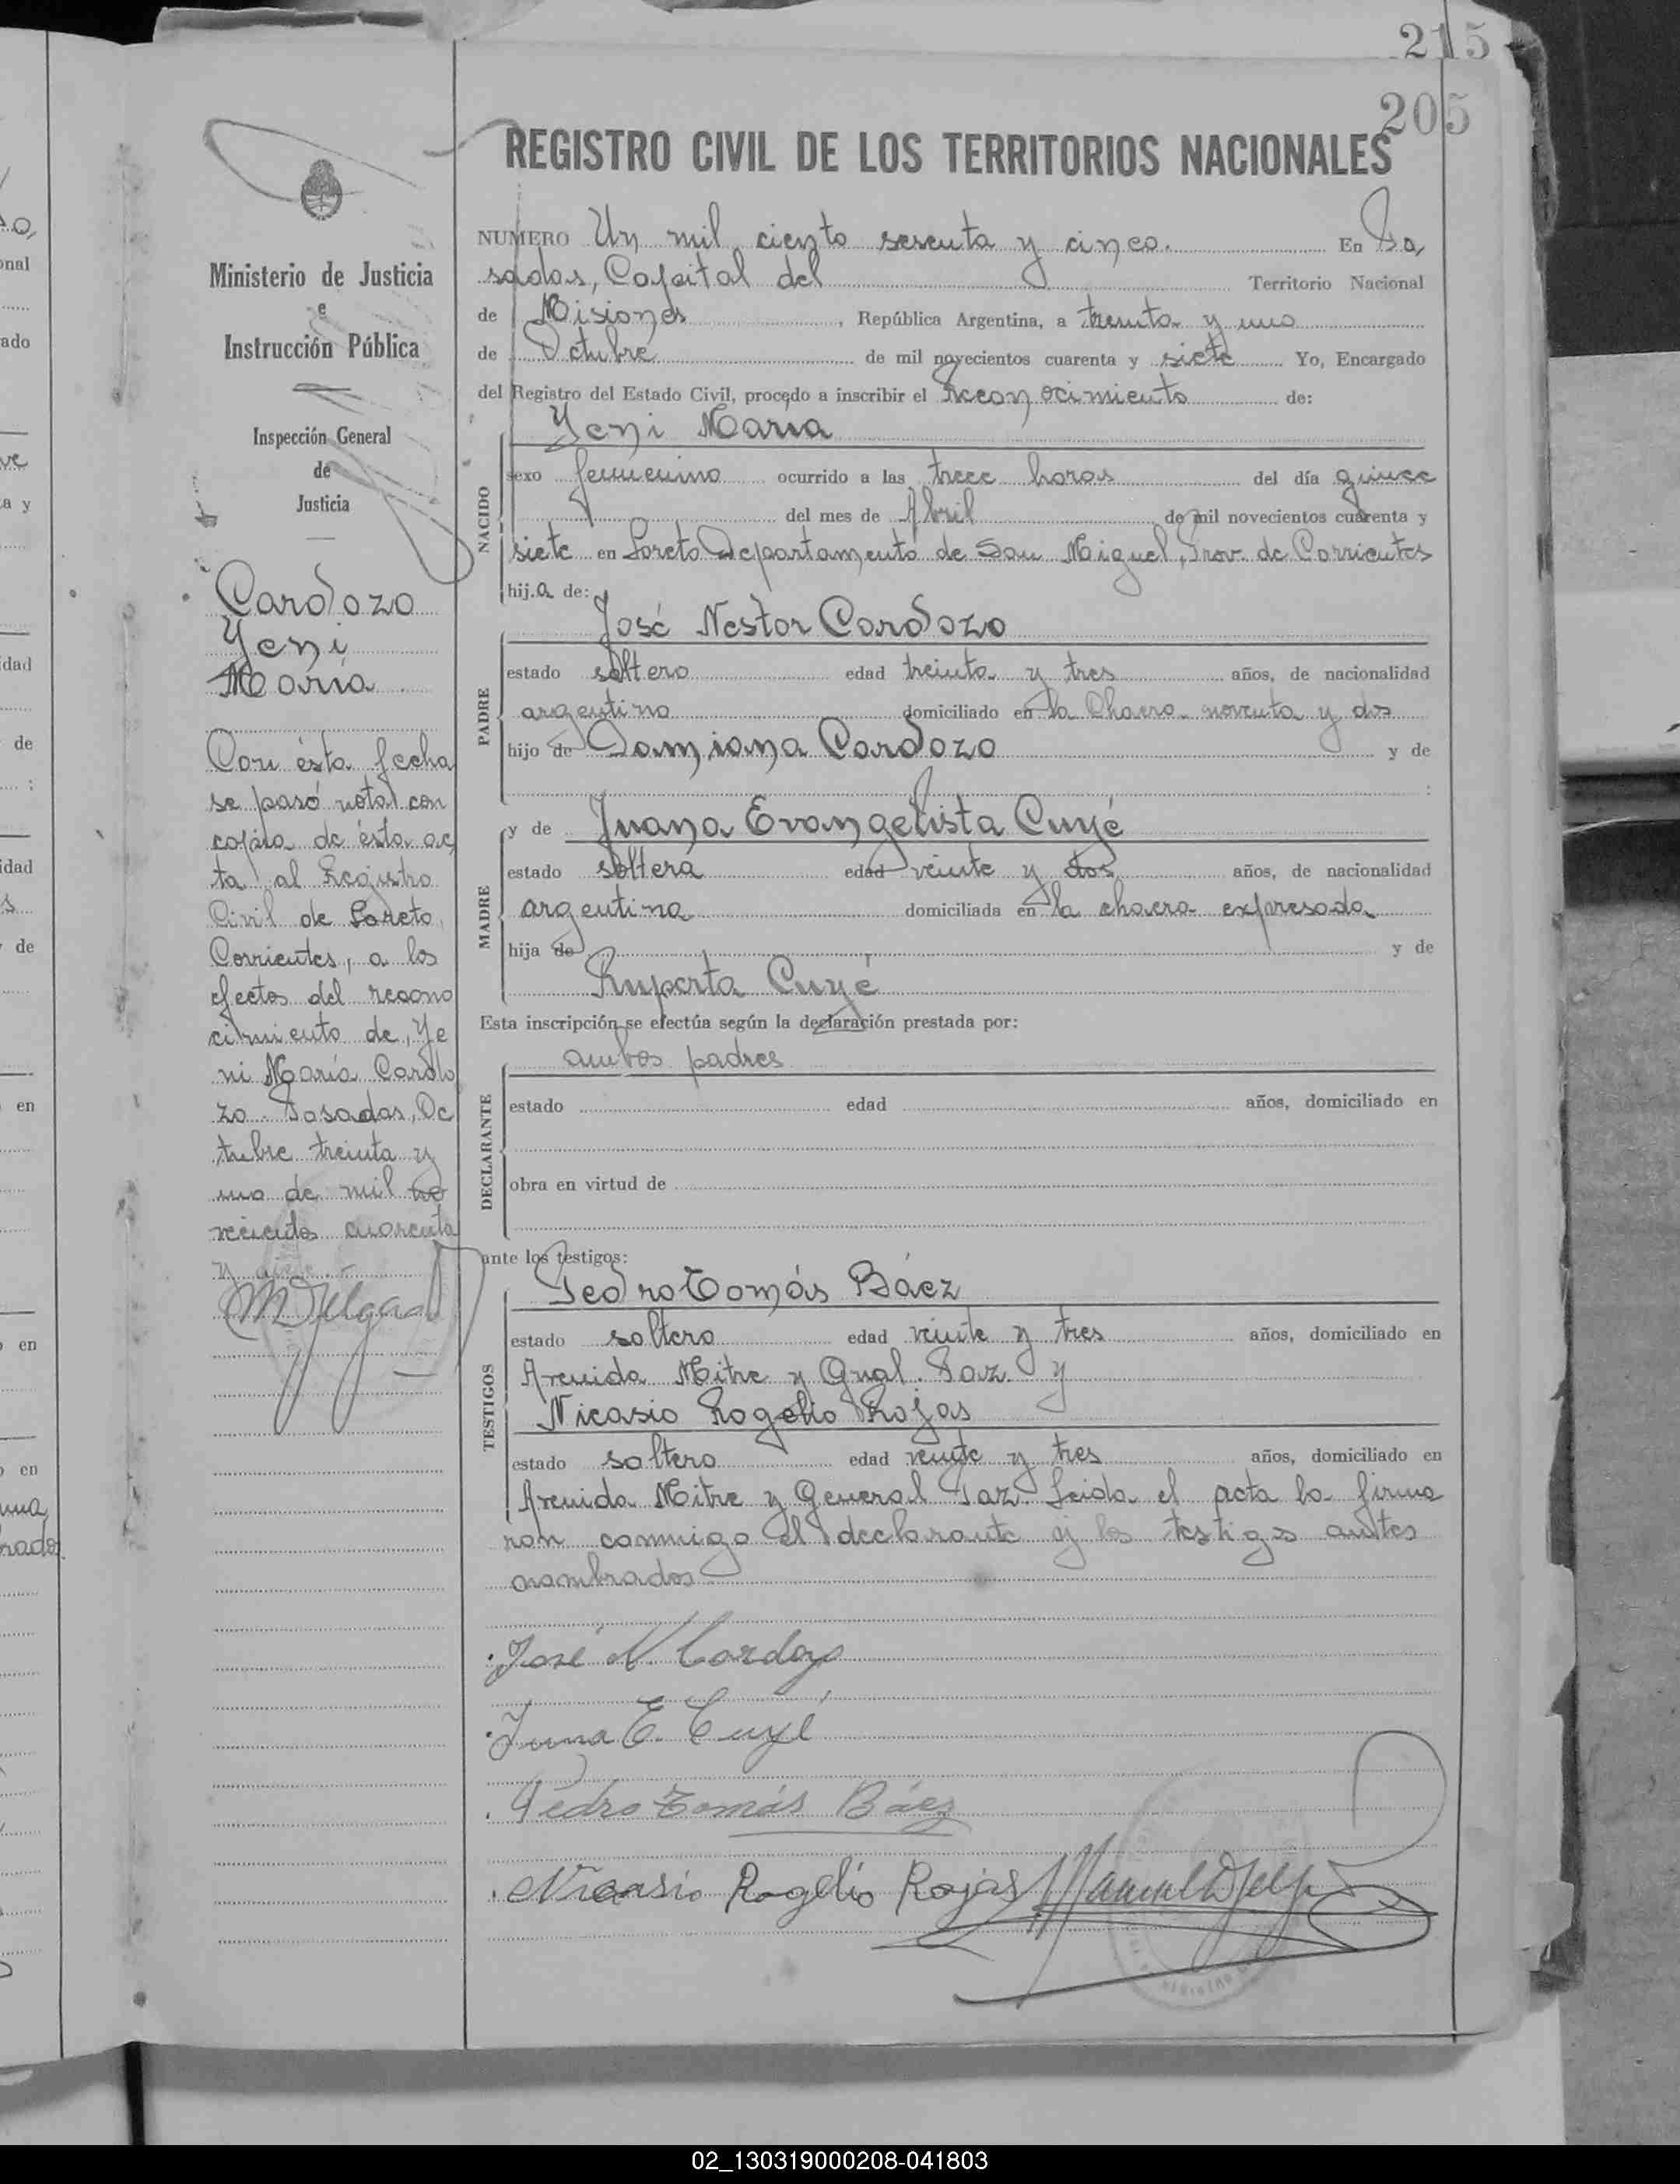 215
205
REGISTRO CIVIL DE LOS TERRITORIOS NACIONALES
Ministerio de Justicia
e
Instrucción Pública
Inspección General
de
Justicia
Cardozo
Yeni
María
Con ésta fecha
se pasó nota con
copia de ésta ac
ta al Registro
Civil de Loreto,
Corrientes, a los
efectos del recono
cimiento de, Ye
ni María Cardo
zo. Posadas, Oc
tubre treinta y
uno de mil no
vecientos cuarenta
y siete.-
NUMERO Un mil ciento sesenta y cinco. En Po,
sadas, Capital del Territorio Nacional
de Misiones, República Argentina, a treinta y uno
de Octubre de mil novecientos cuarenta y siete Yo, Encargado
del Registro del Estado Civil, procedo a inscribir el Reconocimiento de:
Yeni María
NACIDO
sexo femenino ocurrido a las trece horas del día quince
del mes de Abril de mil novecientos cuarenta y
siete en Loreto Departamento de San Miguel, Prov. de Corrientes
hij.a de:
José Nestor Cardozo
PADRE
estado soltero edad treinta y tres años, de nacionalidad
argentino domiciliado en la Chacra noventa y dos
hijo de Damiana Cardozo y de
:
MADRE
y de Juana Evangelista Cuyé
estado soltera edad veinte y dos años, de nacionalidad
argentina domiciliada en la chacra expresada
hija de y de
Ruperta Cuyé
Esta inscripción se efectúa según la declaración prestada por:
ambos padres
DECLARANTE
estado edad años, domiciliado en
obra en virtud de
ante los testigos:
Pedro Tomás Báez
TESTIGOS
estado soltero edad veinte y tres años, domiciliado en
Avenida Mitre y Gral. Paz. y
Nicasio Rogelio Rojas
estado soltero edad veinte y tres años, domiciliado en
Avenida Mitre y General Paz. Leida el acta la firma
ron conmigo el declarante y los testigos antes
nombrados
José N. Cardozo
Juana E. Cuyé
Pedro Tomás Báez
Nicasio Rogelio Rojas
02_130319000208-041803